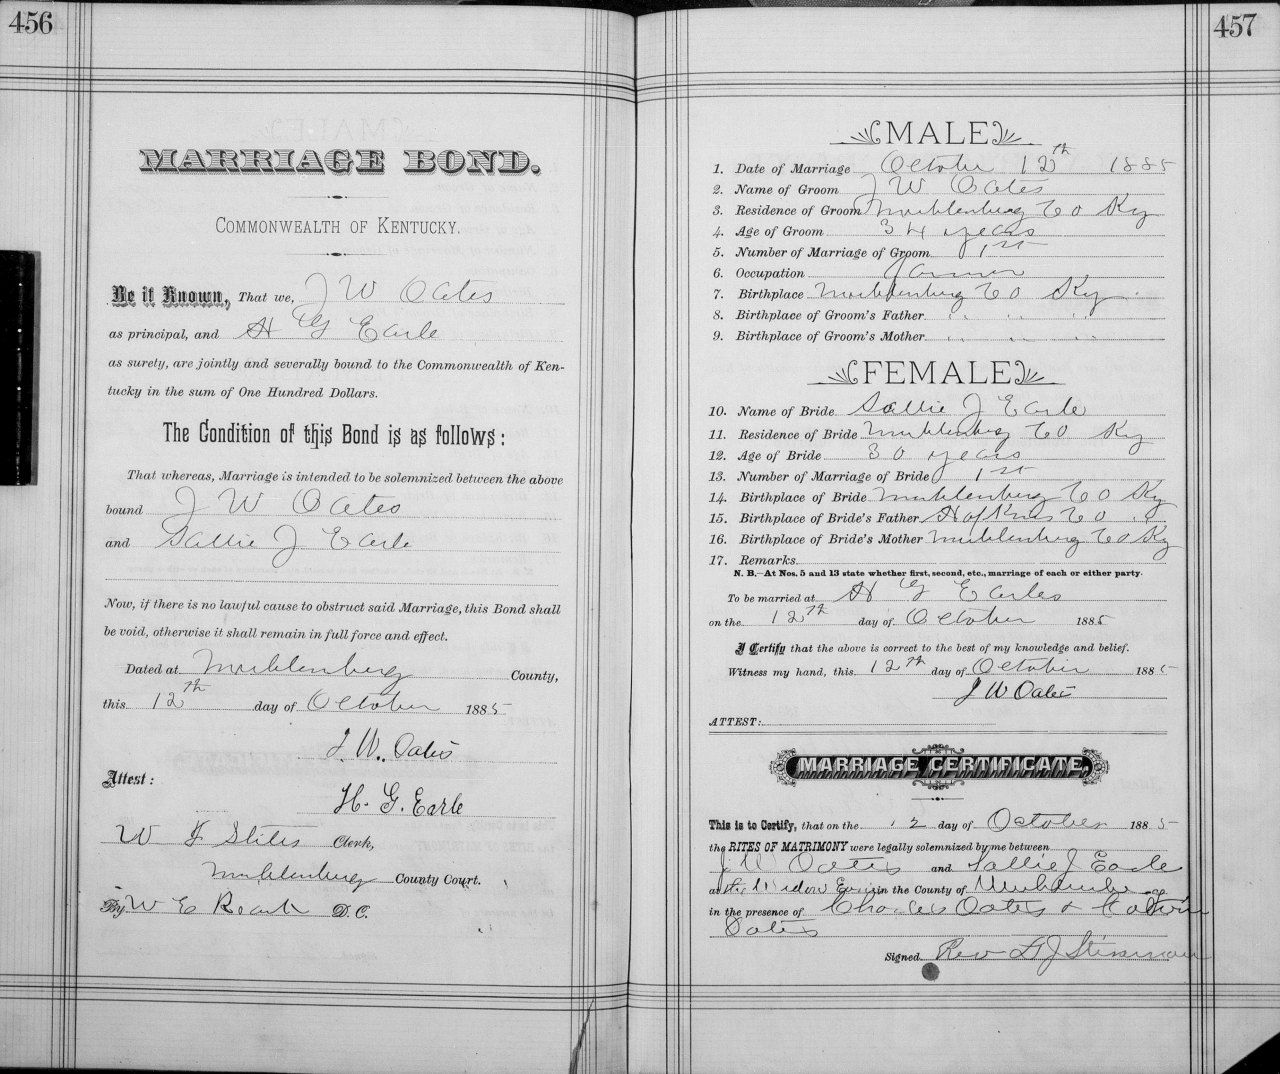 456
MARRIAGE BOND.
COMMONWEALTH OF KENTUCKY.
Be it Known, That we, J W Oates
as principal, and H G Earle
as surety, are jointly and severally bound to the Commonwealth of Ken-
tucky in the sum of One Hundred Dollars.
The Condition of this Bond is as follows:
That whereas, Marriage is intended to be solemnized between the above
bound J W Oates
and Sallie J Earle
Now, if there is no lawful cause to obstruct said Marriage, this Bond shall
be void, otherwise it shall remain in full force and effect.
Dated at Muhlenburg County,
this 12th day of October 1885
J. W. Oates
Attest:
H. G. Earle
W F Stiles Clerk,
Muhlenburg County Court.
By W E Roark D.C.
457
MALE
1. Date of Marriage October 12th 1885
2. Name of Groom J W Oates
3. Residence of Groom Muhlenburg Co Ky
4. Age of Groom 34 years
5. Number of Marriage of Groom 1st
6. Occupation Farmer
7. Birthplace Muhlenburg Co Ky
8. Birthplace of Groom's Father " " "
9. Birthplace of Groom's Mother " " "
FEMALE
10. Name of Bride Sallie J Earle
11. Residence of Bride Muhlenburg Co Ky
12. Age of Bride 30 years
13. Number of Marriage of Bride 1st
14. Birthplace of Bride Muhlenburg Co Ky
15. Birthplace of Bride's Father Hopkins Co "
16. Birthplace of Bride's Mother Muhlenburg Co Ky
17. Remarks
N. B.—At Nos. 5 and 13 state whether first, second, etc., marriage of each or either party.
To be married at H G Earles
on the 12th day of October 1885
I Certify that the above is correct to the best of my knowledge and belief.
Witness my hand, this 12th day of October 1885
J W Oates
ATTEST:
MARRIAGE CERTIFICATE.
This is to Certify, that on the 12 day of October 1885
the RITES OF MATRIMONY were legally solemnized by me between
J W Oates and Sallie J Earle
at the Widow in the County of
in the presence of Charles Oates &
Oates
Signed Rev